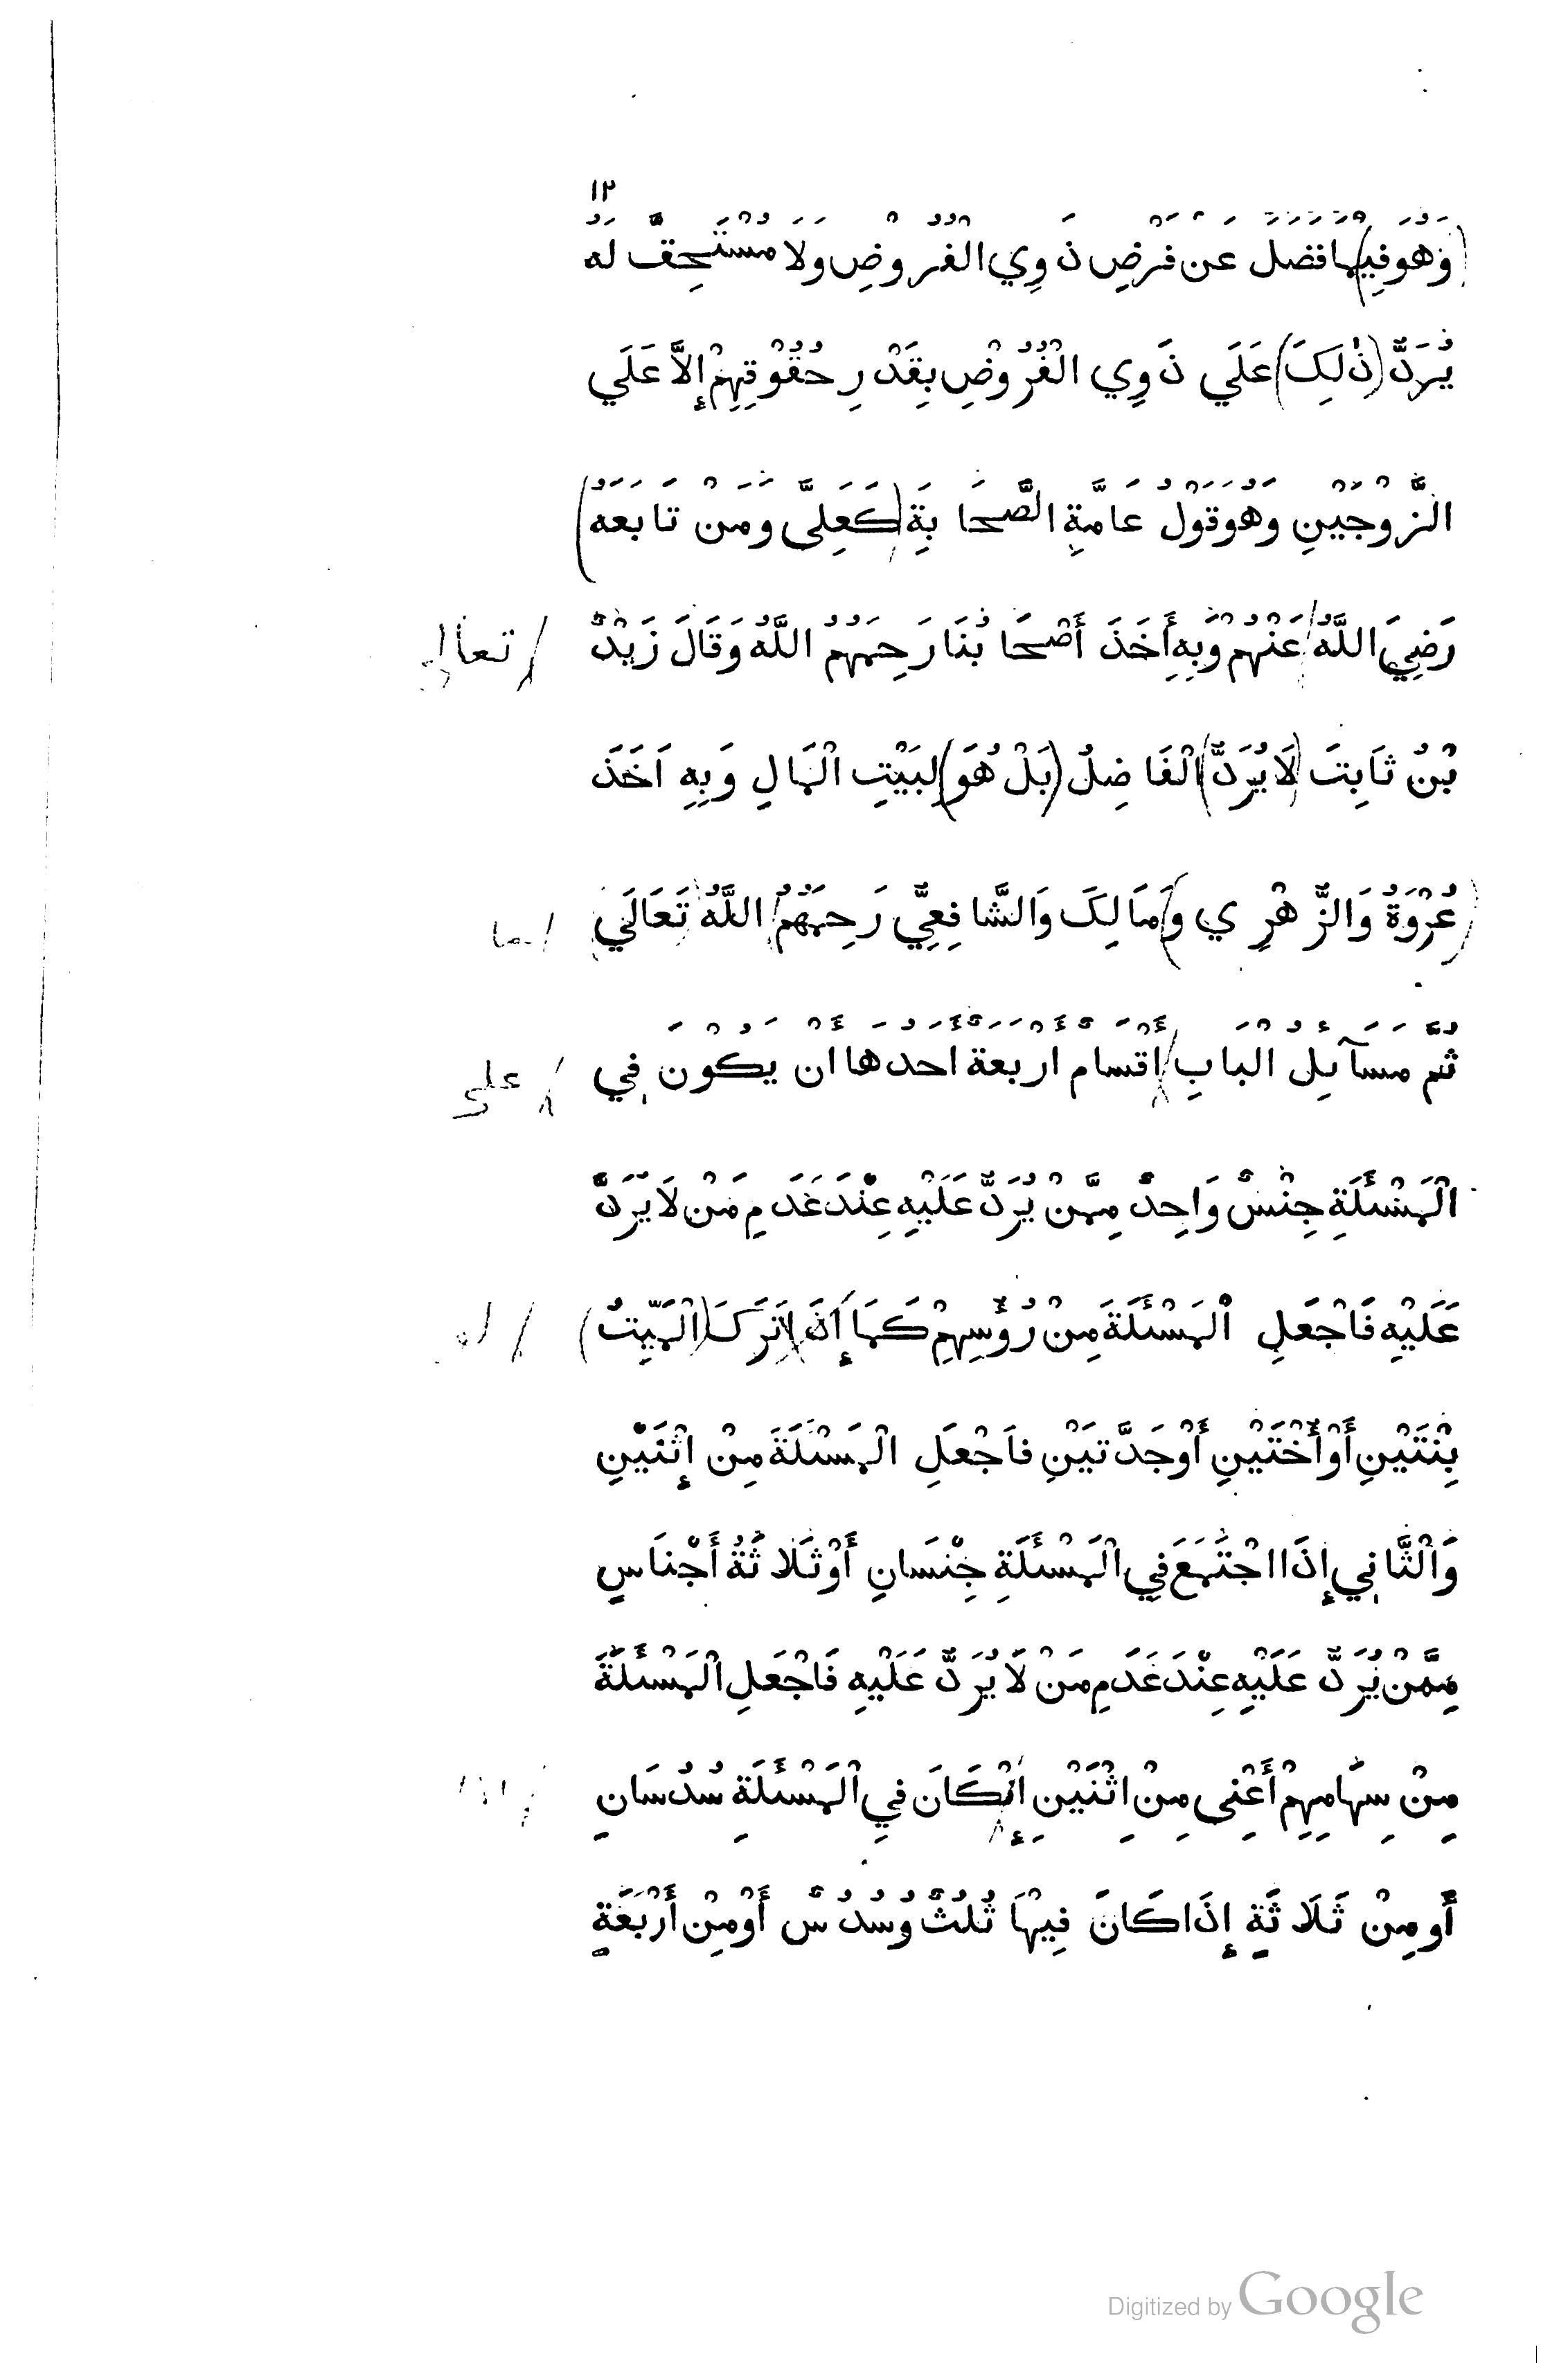 ١٣
(وَهُوَ فِي) مَا فَضَلَ عَنْ فَرْضِ ذَوِي الْفُرُوْضِ وَلَا مُسْتَحِقَّ لَهُ
يُرَدُّ (ذٰلِكَ) عَلَي ذَوِي الْفُرُوْضِ بِقَدْرِ حُقُوْقِهِمْ إِلَّا عَلَي
الزَّوْجَيْنِ وَهُوَ قَوْلُ عَامَّةِ الصَّحَابَةِ (كَعَلِىٍّ وَمَنْ تَابَعَهُ)
رَضِيَ اللَّهُ / عَنْهُمْ وَبِهِ أَخَذَ أَصْحَابُنَا رَحِمَهُمُ اللَّهُ وَقَالَ زَيْدُ / تعالى
بْنُ ثَابِتَ (لَا يُرَدُّ) الْفَاضِلُ (بَلْ هُوَ) لِبَيْتِ الْمَالِ وَبِهِ اَخَذَ
(عُرْوَةُ وَالزُّهْرِي وَ) مَالِكَ وَالشَّافِعِيُّ رَحِمَهُمُ اللَّهُ تَعَالَي / هما
ثُمَّ مَسَآئِلُ الْبَابِ / أَقْسَامٌ أَرْبَعَةٌ أَحَدُهَا أَنْ يَكُوْنَ فِي / على
الْمَسْئَلَةِ جِنْسٌ وَاحِدٌ مِمَّنْ يُرَدُّ عَلَيْهِ عِنْدَ عَدَمِ مَنْ لَا يُرَدُّ
عَلَيْهِ فَاجْعَلِ الْمَسْئَلَةَ مِنْ رُؤُسِهِمْ كَمَا إِذَا تَرَكَ (الْمَيِّتُ) / لو
بِنْتَيْنِ أَوْ أُخْتَيْنِ أَوْ جَدَّتَيْنِ فَاجْعَلِ الْمَسْئَلَةَ مِنْ إِثْنَيْنِ
وَالْثَّانِي إِذَا اجْتَمَعَ فِي الْمَسْئَلَةِ جِنْسَانِ أَوْ ثَلَاثَةُ أَجْنَاسٍ
مِمَّنْ يُرَدُّ عَلَيْهِ عِنْدَ عَدَمِ مَنْ لَا يُرَدُّ عَلَيْهِ فَاجْعَلِ الْمَسْئَلَةَ
مِنْ سِهَامِهِمْ أَعْنِى مِنْ اِثْنَيْنِ إِنْ كَانَ فِي الْمَسْئَلَةِ سُدُسَانِ
أَو مِنْ ثَلَاثَةٍ إِذَا كَانَ فِيْهَا ثُلُثٌ وَسُدُسٌ أَوْ مِنْ أَرْبَعَةٍ
Digitized by Google